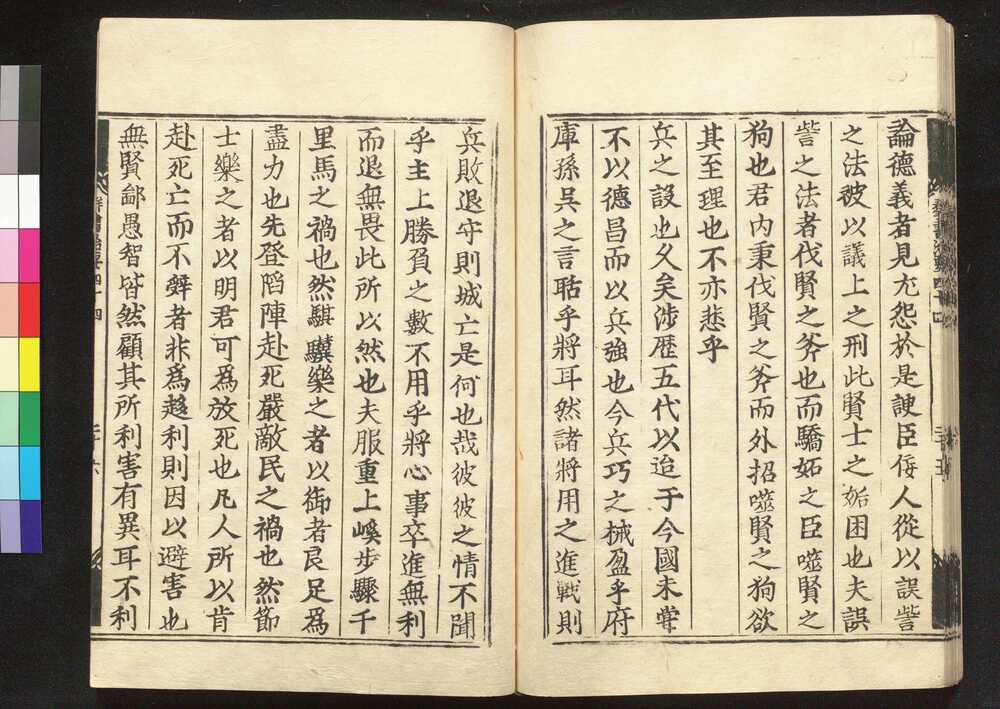 論德義者見尤怨於是諛臣佞人從以誤訾
之法被以議上之刑此賢士之姤困也夫誤
訾之法者伐賢之斧也而驕妬之臣噬賢之
狗也君内秉伐賢之斧而外招噬賢之狗欲
其至理也不亦悲乎
兵之設也久矣涉歴五代以迨于今國未甞
不以德昌而以兵強也今兵巧之械盈乎府
庫孫吳之言聒乎將耳然諸將用之進戰則
兵敗退守則城亡是何也哉彼彼之情不聞
乎主上勝負之數不用乎將心事卒進無利
而退無畏此所以然也夫服重上嶮步驟千
里馬之禍也然騏驥樂之者以御者良足為
盡力也先登陷陣赴死嚴敵民之禍也然節
士樂之者以明君可為放死也凡人所以肯
赴死亡而不辤者非為趍利則因以避害也
無賢鄙愚智皆然顧其所利害有異耳不利
群書治要四十四
二十六